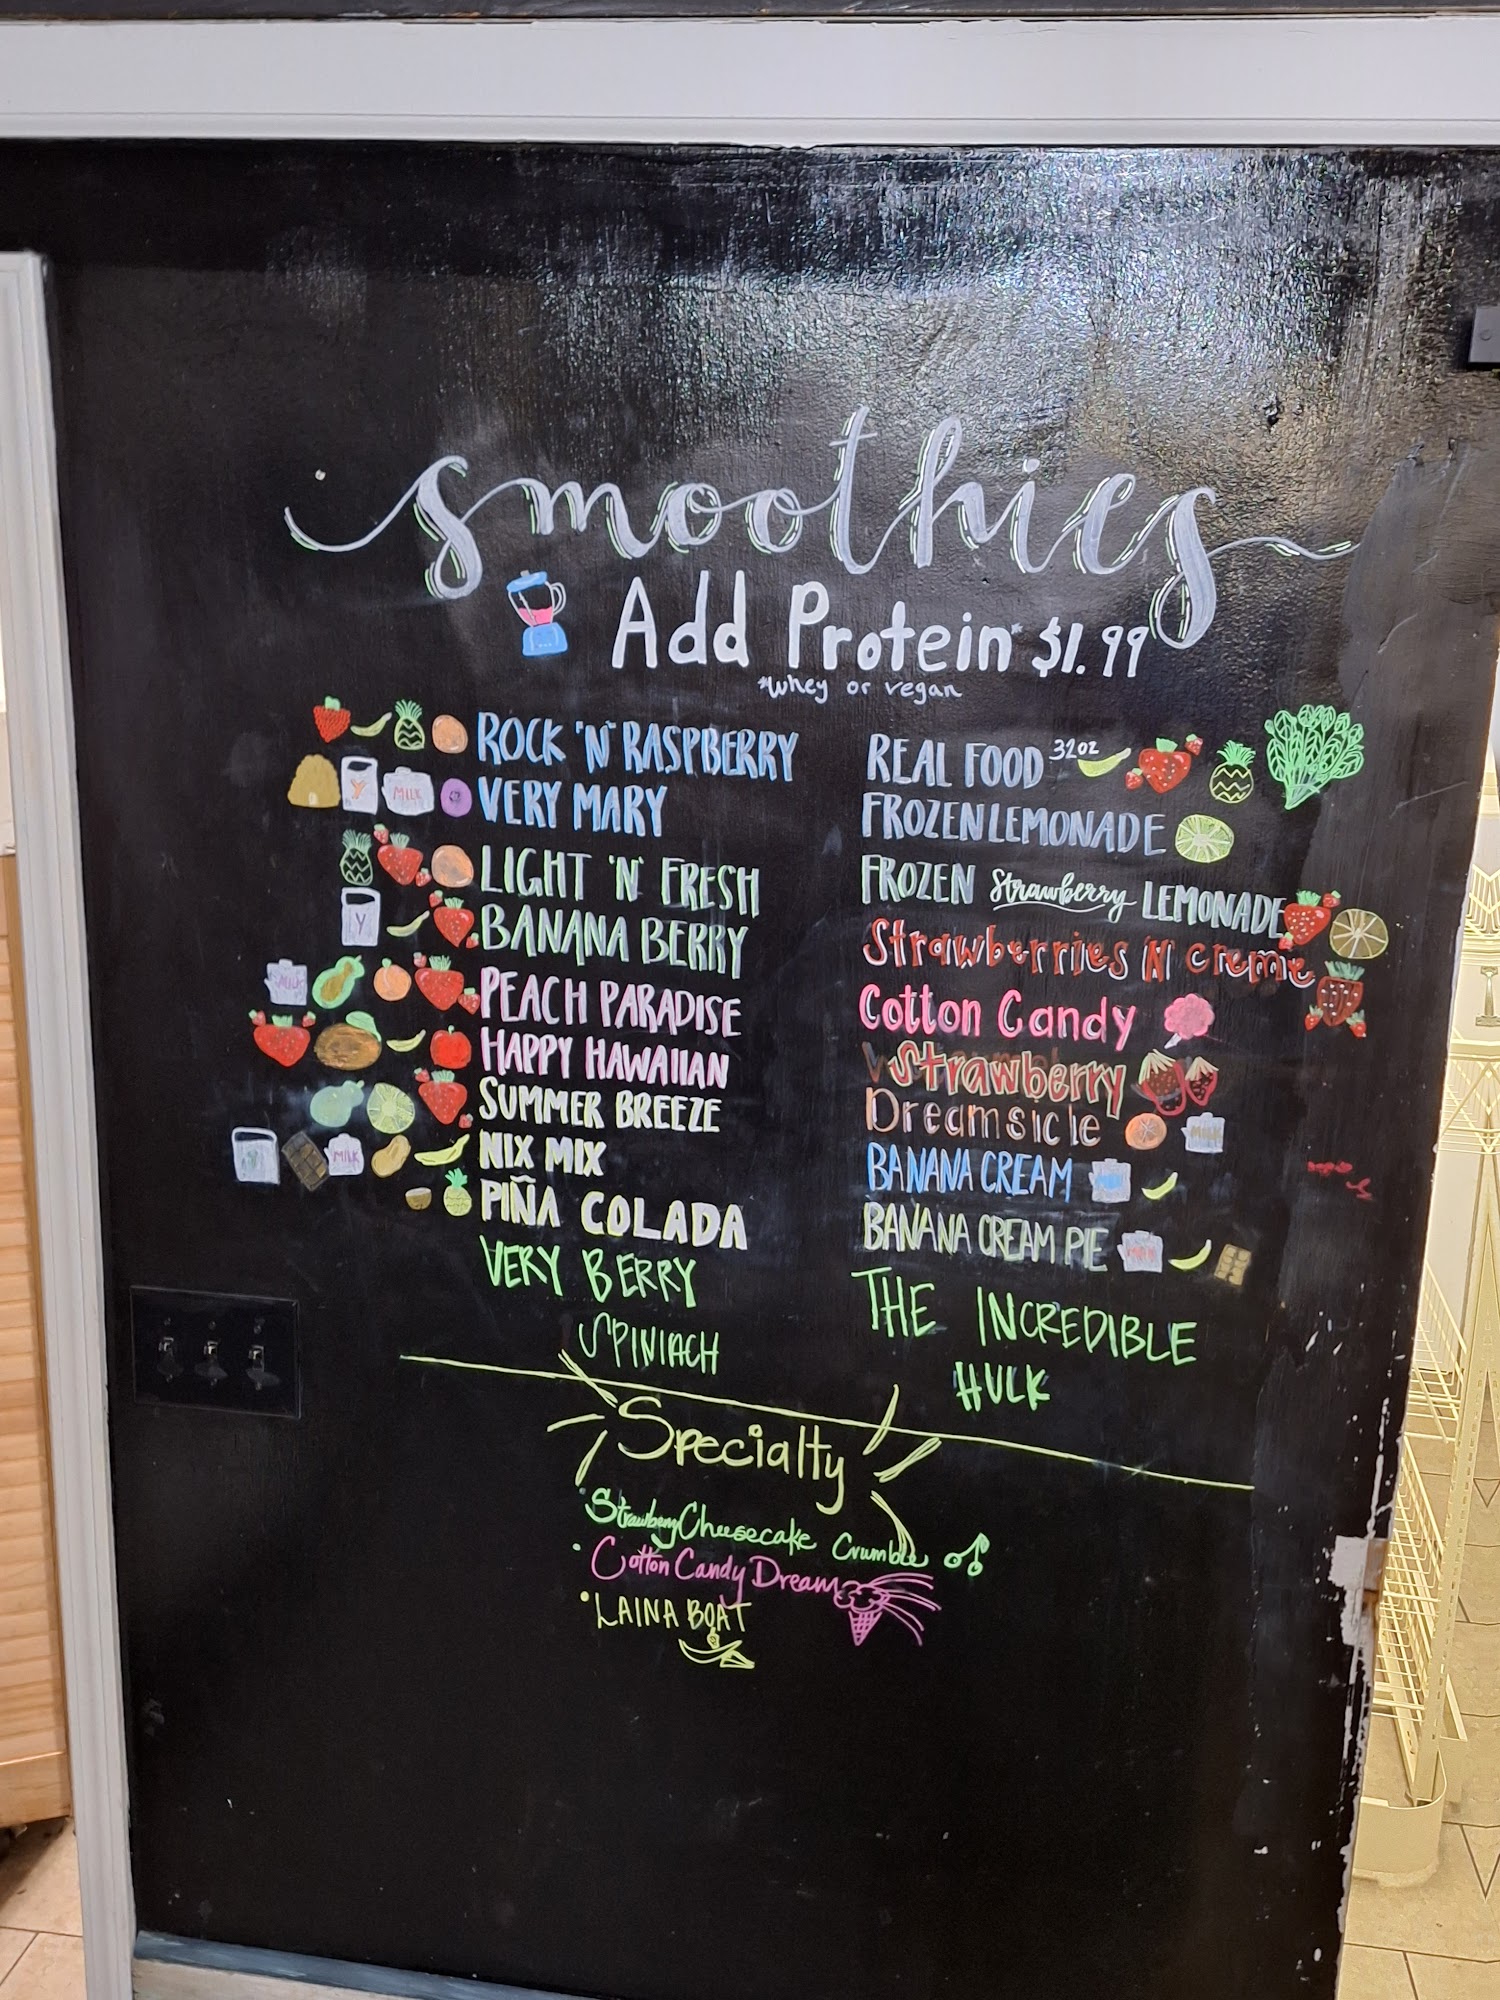 smoothies
Add Protein* $1.99
*whey or vegan
ROCK 'N' RASPBERRY
VERY MARY
LIGHT 'N' FRESH
BANANA BERRY
PEACH PARADISE
HAPPY HAWAIIAN
SUMMER BREEZE
NIX MIX
PIÑA COLADA
VERY BERRY
SPINIACH
REAL FOOD 32oz
FROZEN LEMONADE
FROZEN Strawberry LEMONADE
Strawberries 'N creme
Cotton Candy
Strawberry
Dreamsicle
BANANA CREAM
BANANA CREAM PIE
THE INCREDIBLE
HULK
Specialty
Strawberry Cheesecake Crumble
• Cotton Candy Dream
• LAINA BOAT
Y
MILK
Y
MILK
MILK
MILK
MILK